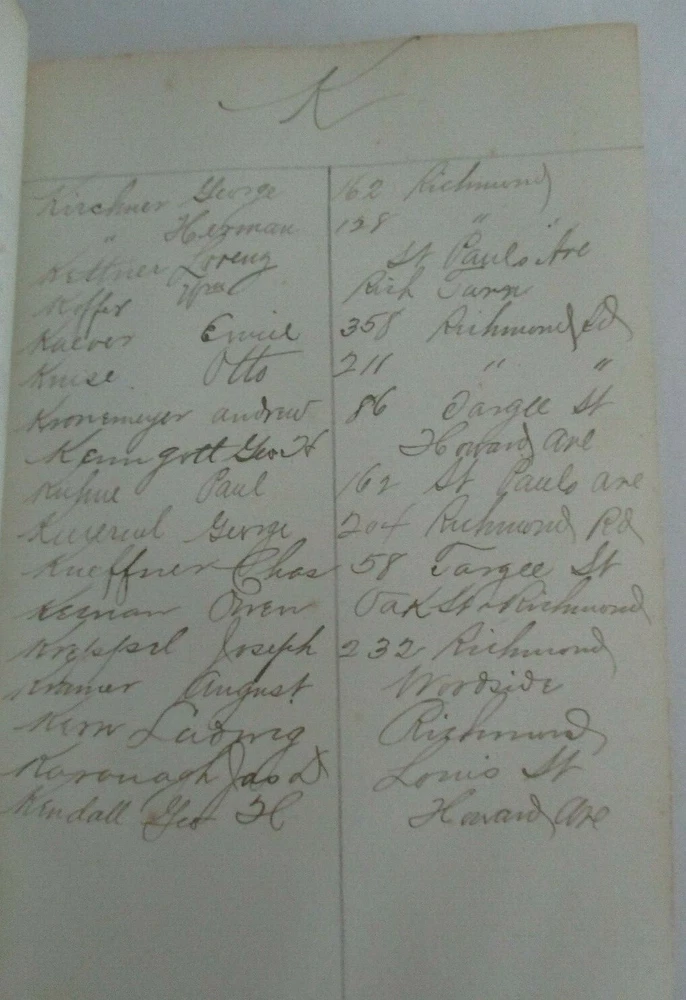 K
Kirchner George 162 Richmond
" Herman 128 " "
Kettner Loreng St Pauls Ave
Koffer Wm Rich Turn
Kaever Emile 358 Richmond Rd
Kruse Otto 211 " "
Kronemeyer andrew 86 Targee St
Kemgott Geo H Howard ave
Kuhne Paul 162 St Pauls ave
George 204 Richmond Rd
Kueffner Chas 58 Targee St
Keenan Owen Oak St + Richmond
Kreppel Joseph 232 Richmond
Kramer August Woodside
Kern Ludwig Richmond
Kavanagh Jas Louis St
Kendall Geo H Howard Ave